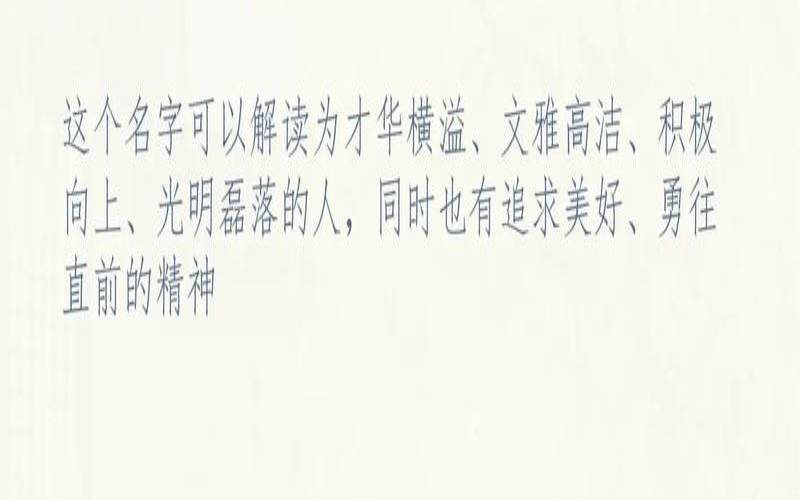 这个名字可以解读为才华横溢、文雅高洁、积极
向上、光明磊落的人，同时也有追求美好、勇往
直前的精神